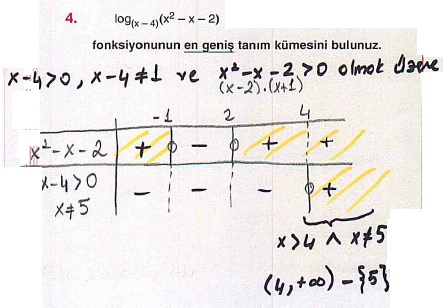 4. log(x – 4)(x² – x – 2)
fonksiyonunun en geniş tanım kümesini bulunuz.
x-4>0, x-4≠1 ve x²-x-2>0 olmak üzere
(x-2).(x+1)
-1 2 4
x²-x-2 + - + +
x-4>0 - - - +
x≠5
x>4 ∧ x≠5
(4,+∞) - {5}